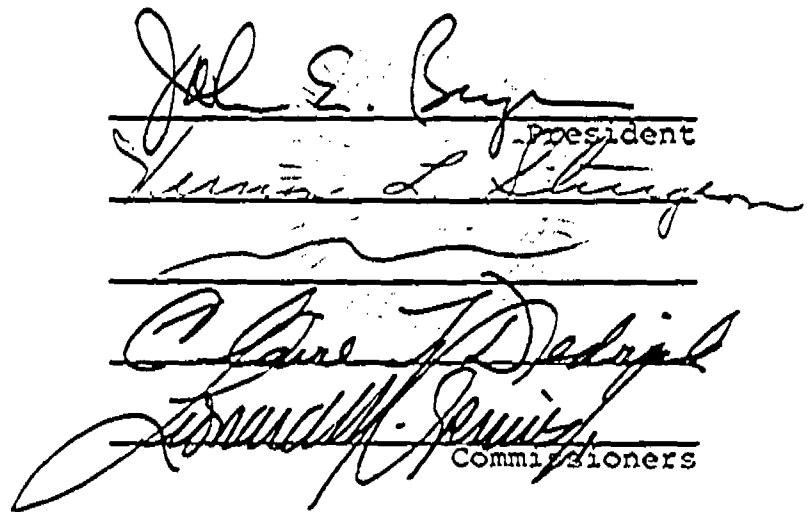 John E. Bryson
President
Vernon L. Sturgeon
Claire T. Dedrick
Leonard M. Grimes
Commissioners